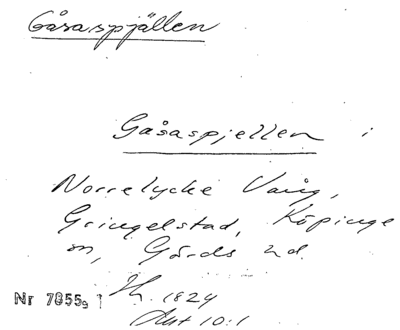 Gåsaspjällen
Gåsaspjellen i
Norrelycke Vång,
Gringelstad, Köpinge
sn, Gärds hd.
Nr 7855₉ 1 Jh. 1824
Akt 10:1